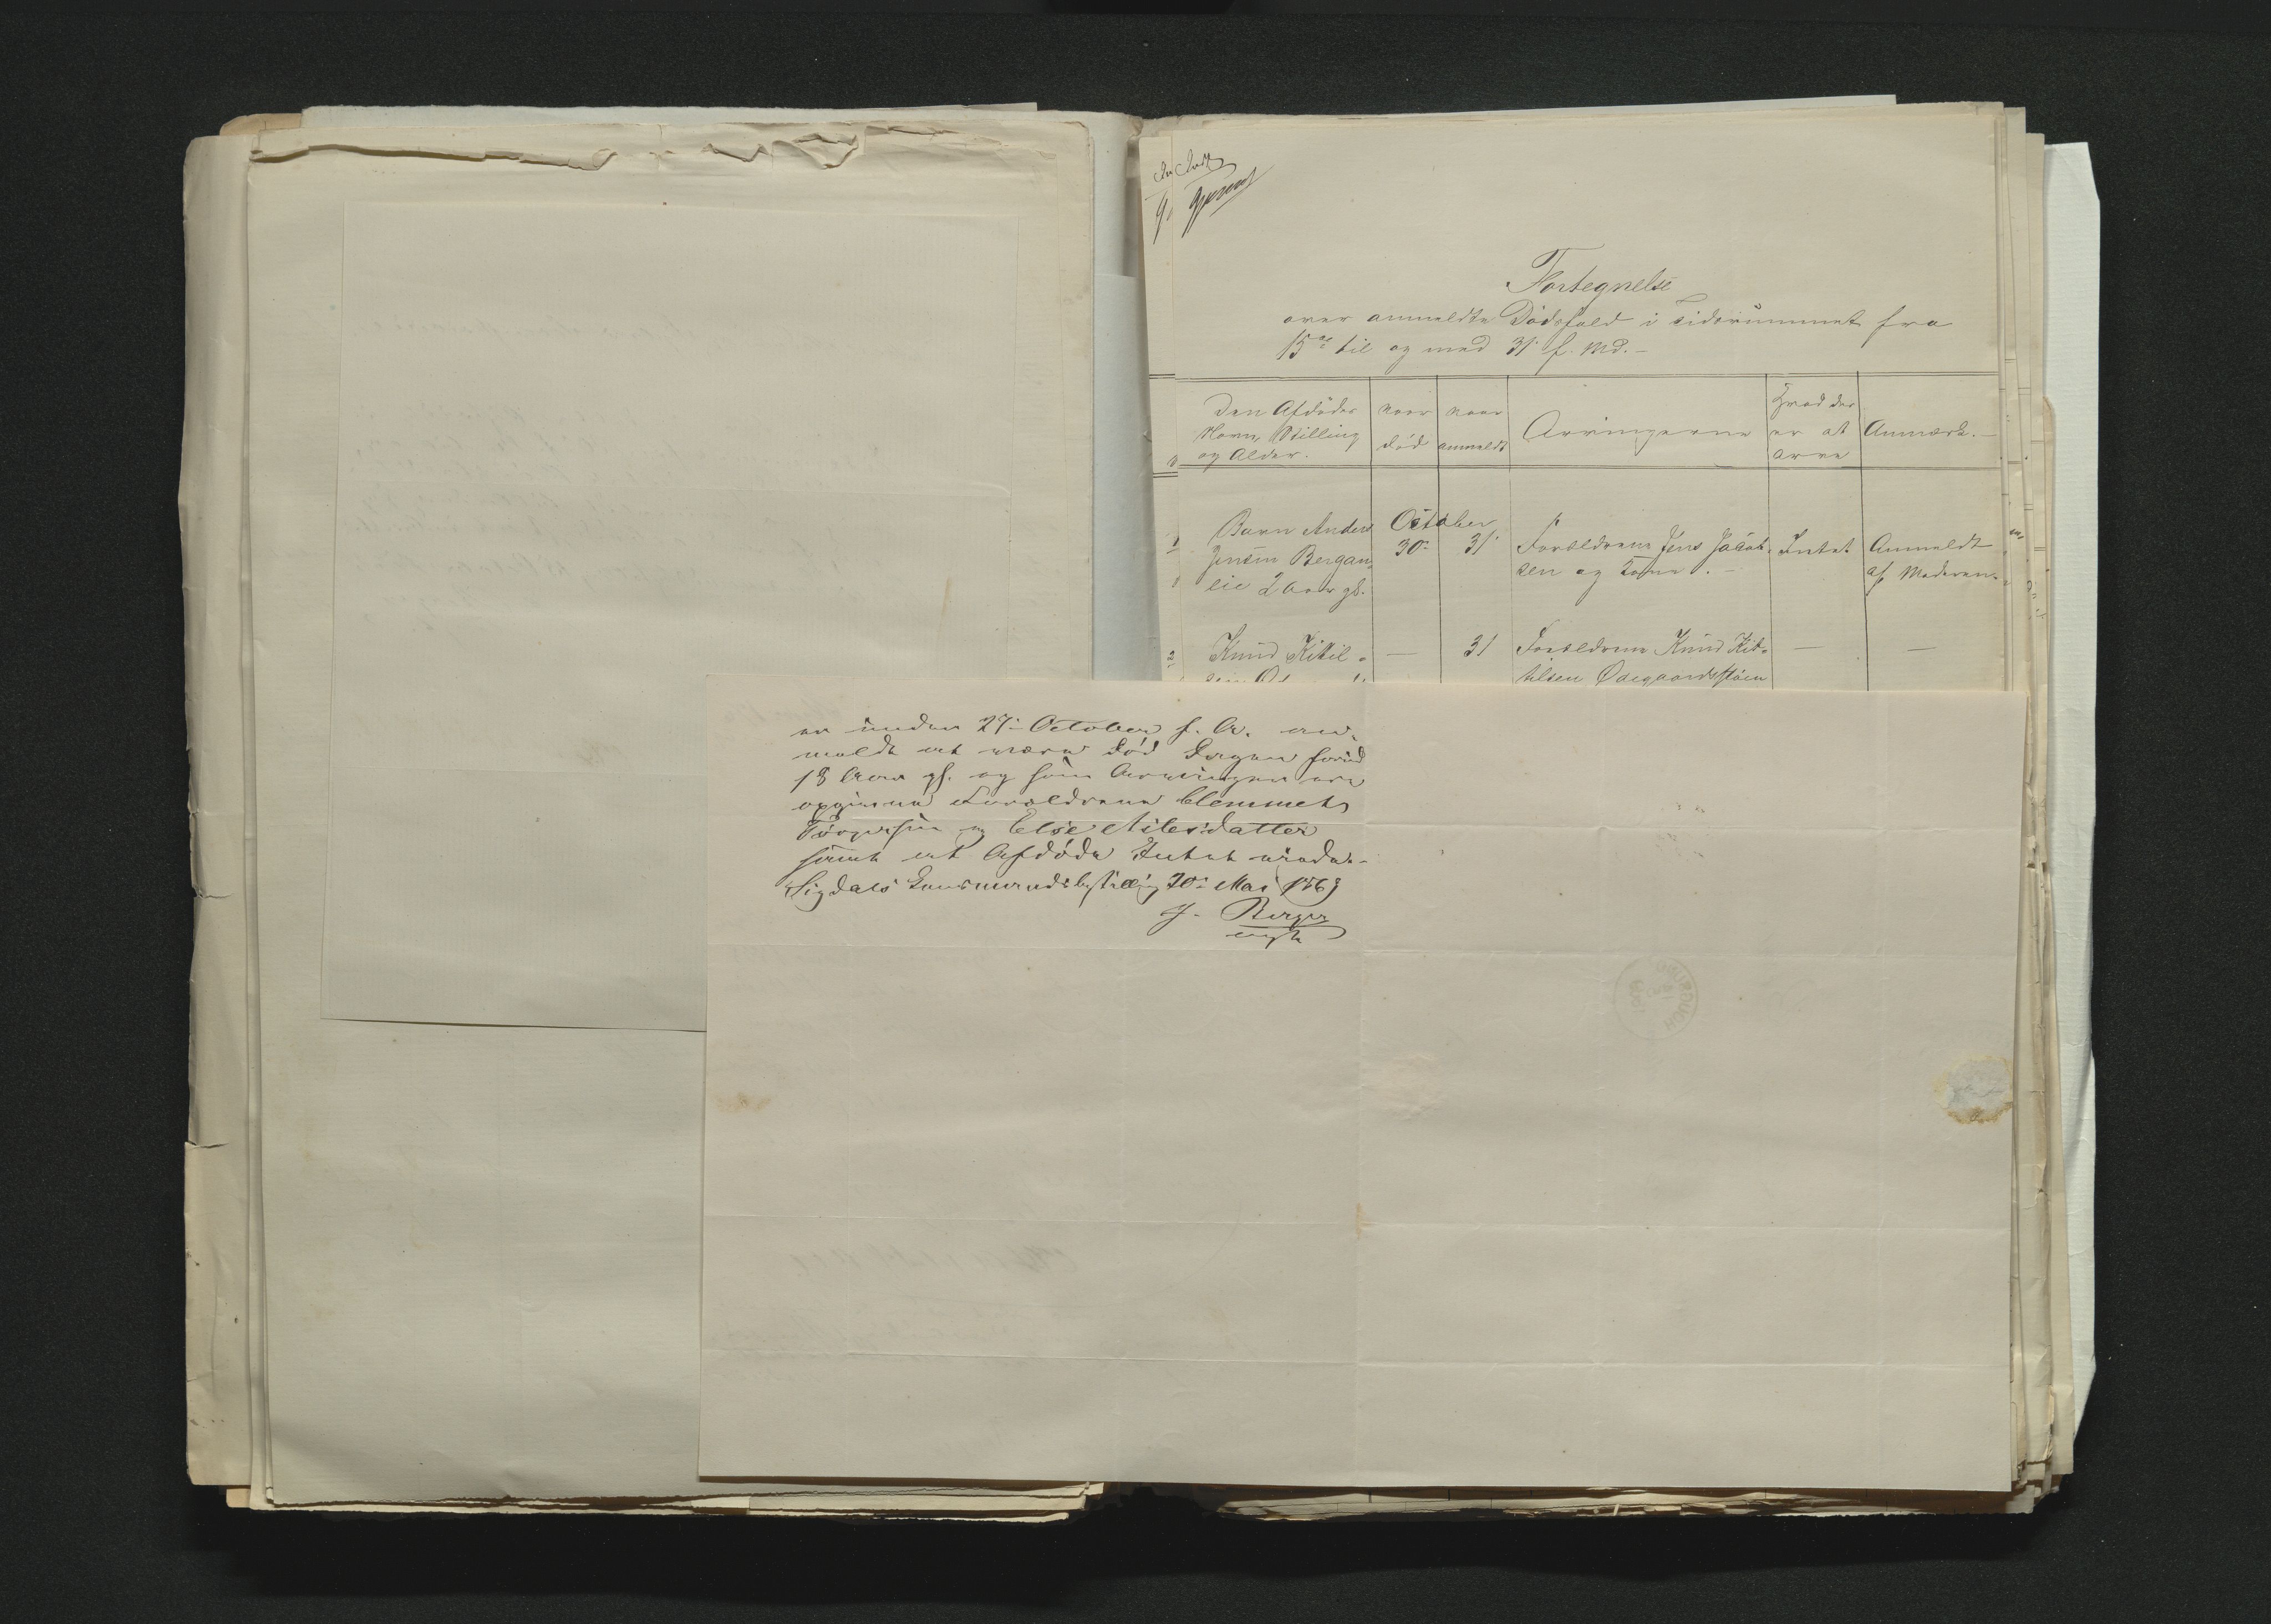 Fortegnelse
over anmeldte Dødsfald i Tidsrummet fra
15de til og med 31' f. Md.-
Den Afdødes Navn, Stilling og Alder.
naar død
naar anmeldt
Arvingerne
Hvad der er at arve
Anmærk.-
October
1 Barn Anders
Jensen Bergan-
lie 2 Aar gl.
30'
31'
Forældrene Jens Jacob-
sen og Kone.-
Intet
Anmeldt
af Moderen.
2 Knud Kittil-
—
31
Forældrene Knud Kit-
tilsen Ødegaardsstuen
—
—
er under 27' October f. A. an-
meldt at være død Dagen forud
18 Aar gl. og som Arvinger ere
opgivne Forældrene Clemmet
Torgersen og Else Nilsdatter
samt at Afdøde Intet eiede.-
Sigdals Lensmandsbestilling 30' Mai 1863
J. Berger